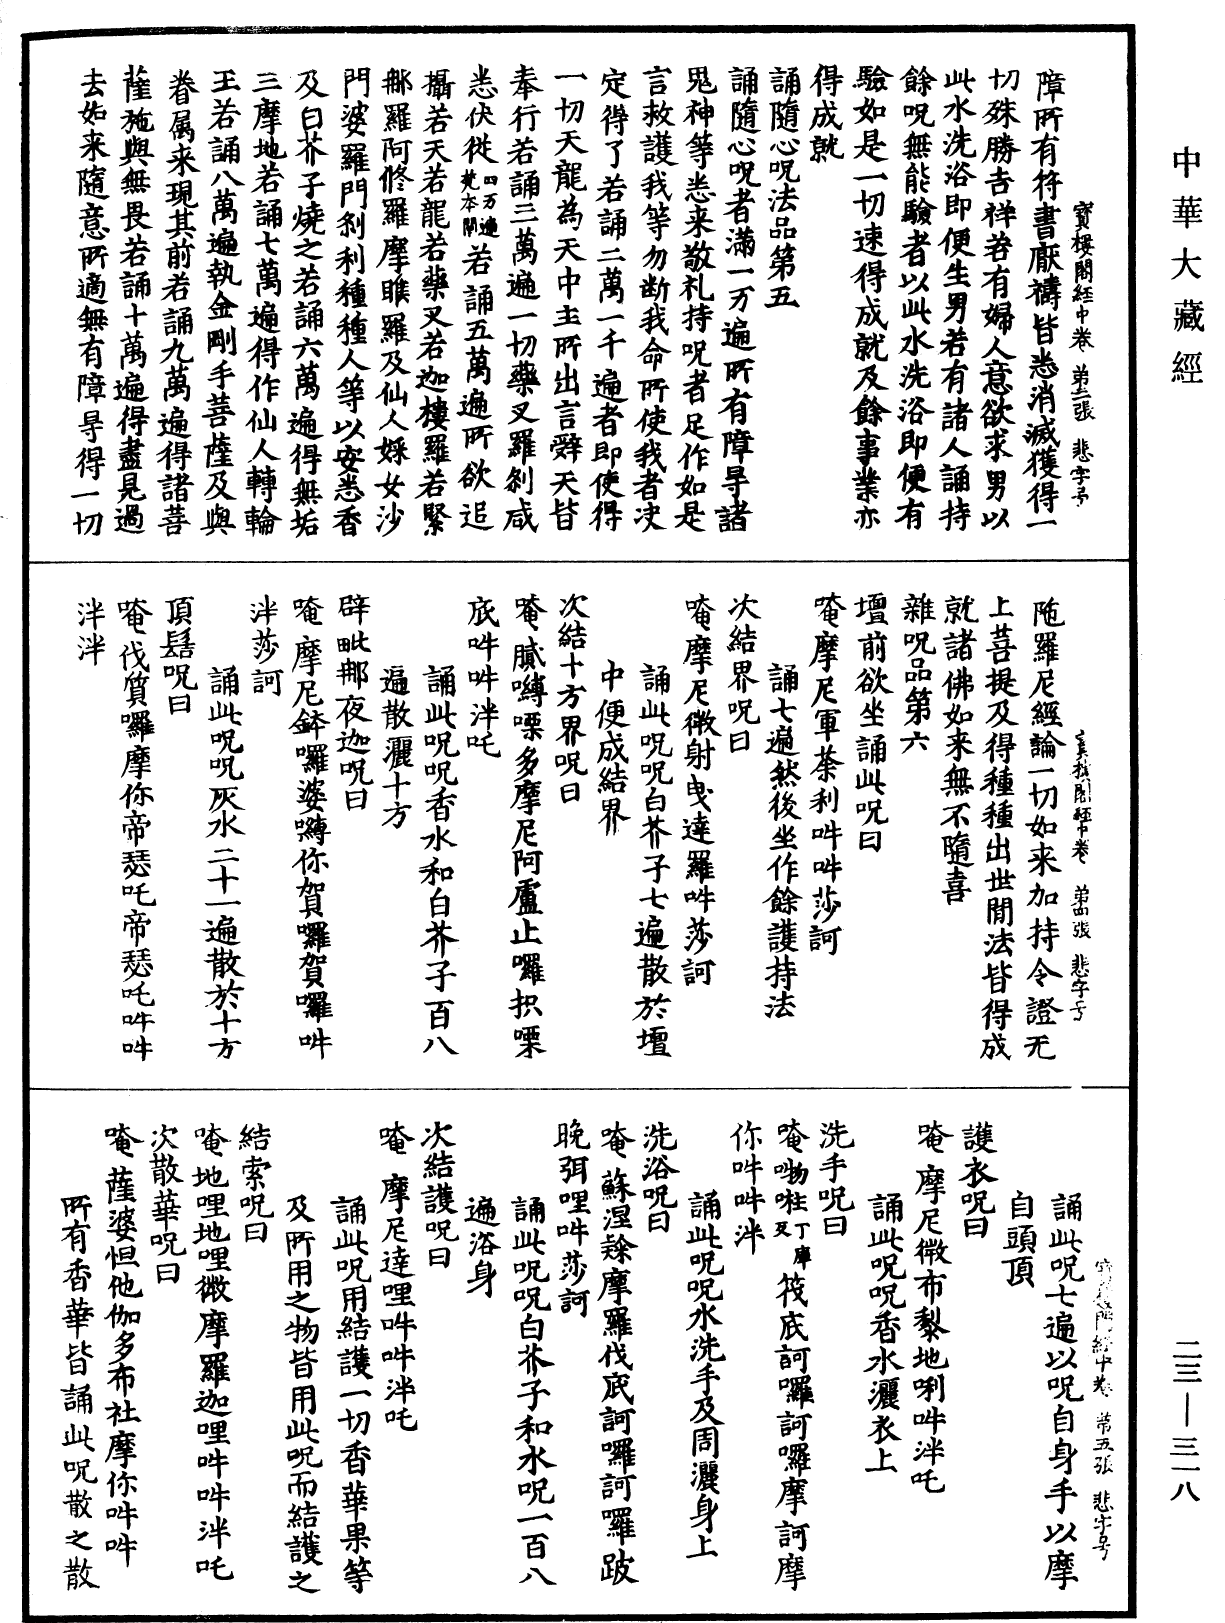 中華大藏經
寶樓閣經中卷 第三張 悲字号
障所有符書厭禱皆悉消滅獲得一
切殊勝吉祥若有婦人意欲求男以
此水洗浴即便生男若有諸人誦持
餘呪無能驗者以此水洗浴即便有
驗如是一切速得成就及餘事業亦
得成就
誦隨心呪法品第五
誦隨心呪者滿一万遍所有障㝵諸
鬼神等悉来敬礼持呪者足作如是
言救護我等勿断我命所使我者决
定得了若誦二萬一千遍者即便得
一切天龍為天中主所出言辞天皆
奉行若誦三萬遍一切藥叉羅剎咸
悉伏從四万遍梵本闕若誦五萬遍所欲追
攝若天若龍若藥叉若迦樓羅若緊
那羅阿脩羅摩睺羅及仙人婇女沙
門婆羅門剎利種種人等以安悉香
及白芥子燒之若誦六萬遍得無垢
三摩地若誦七萬遍得作仙人轉輪
王若誦八萬遍執金剛手菩薩及與
眷属来現其前若誦九萬遍得諸菩
薩施與無畏若誦十萬遍得盡見過
去如来隨意所適無有障㝵得一切
寶樓閣經中卷 第四張 悲字号
陁羅尼經論一切如来加持令證无
上菩提及得種種出世間法皆得成
就諸佛如来無不隨喜
雜呪品第六
壇前欲坐誦此呪曰
唵摩尼軍荼利吽吽莎訶
誦七遍然後坐作餘護持法
次結界呪曰
唵摩尼微射曳達羅吽莎訶
誦此呪呪白芥子七遍散於壇
中便成結界
次結十方界呪曰
唵膩嚩㗚多摩尼阿盧止囉抧㗚
底吽吽泮吒
誦此呪呪香水和白芥子百八
遍散灑十方
辟毗那夜迦呪曰
唵摩尼鉢囉婆嚩你賀囉賀囉吽
泮莎訶
誦此呪呪灰水二十一遍散於十方
頂髻呪曰
唵伐質囉摩你帝瑟吒帝瑟吒吽吽
泮泮
寶樓閣經中卷 第五張 悲字号
誦此呪七遍以呪自身手以摩
自頭頂
護衣呪曰
唵摩尼微布黎地唎吽泮吒
誦此呪呪香水灑衣上
洗手呪曰
唵㗉㗌丁庫反筏底訶囉訶囉摩訶摩
你吽吽泮
誦此呪呪水洗手及周灑身上
洗浴呪曰
唵蘇涅𨀣摩羅伐底訶囉訶囉跛
晚弭哩吽莎訶
誦此呪呪白芥子和水呪一百八
遍浴身
次結護呪曰
唵摩尼達哩吽吽泮吒
誦此呪用結護一切香華果等
及所用之物皆用此呪而結護之
結索呪曰
唵地哩地哩微摩羅迦哩吽吽泮吒
次散華呪曰
唵薩婆怛他伽多布社摩你吽吽
所有香華皆誦此呪散之散
二三—三一八